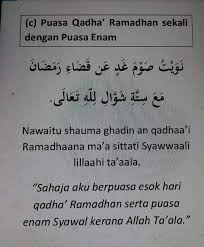 (c) Puasa Qadha' Ramadhan sekali
dengan Puasa Enam
نَوَيْتُ صَوْمَ غَدٍ عَنْ قَضَاءِ رَمَضَانَ
مَعَ سِتَّةِ شَوَّالٍ لِلّٰهِ تَعَالَى.
Nawaitu shauma ghadin an qadhaa'i
Ramadhaana ma'a sittati Syawwaali
lillaahi ta'aala.
"Sahaja aku berpuasa esok hari
qadha' Ramadhan serta puasa
enam Syawal kerana Allah Ta'ala."